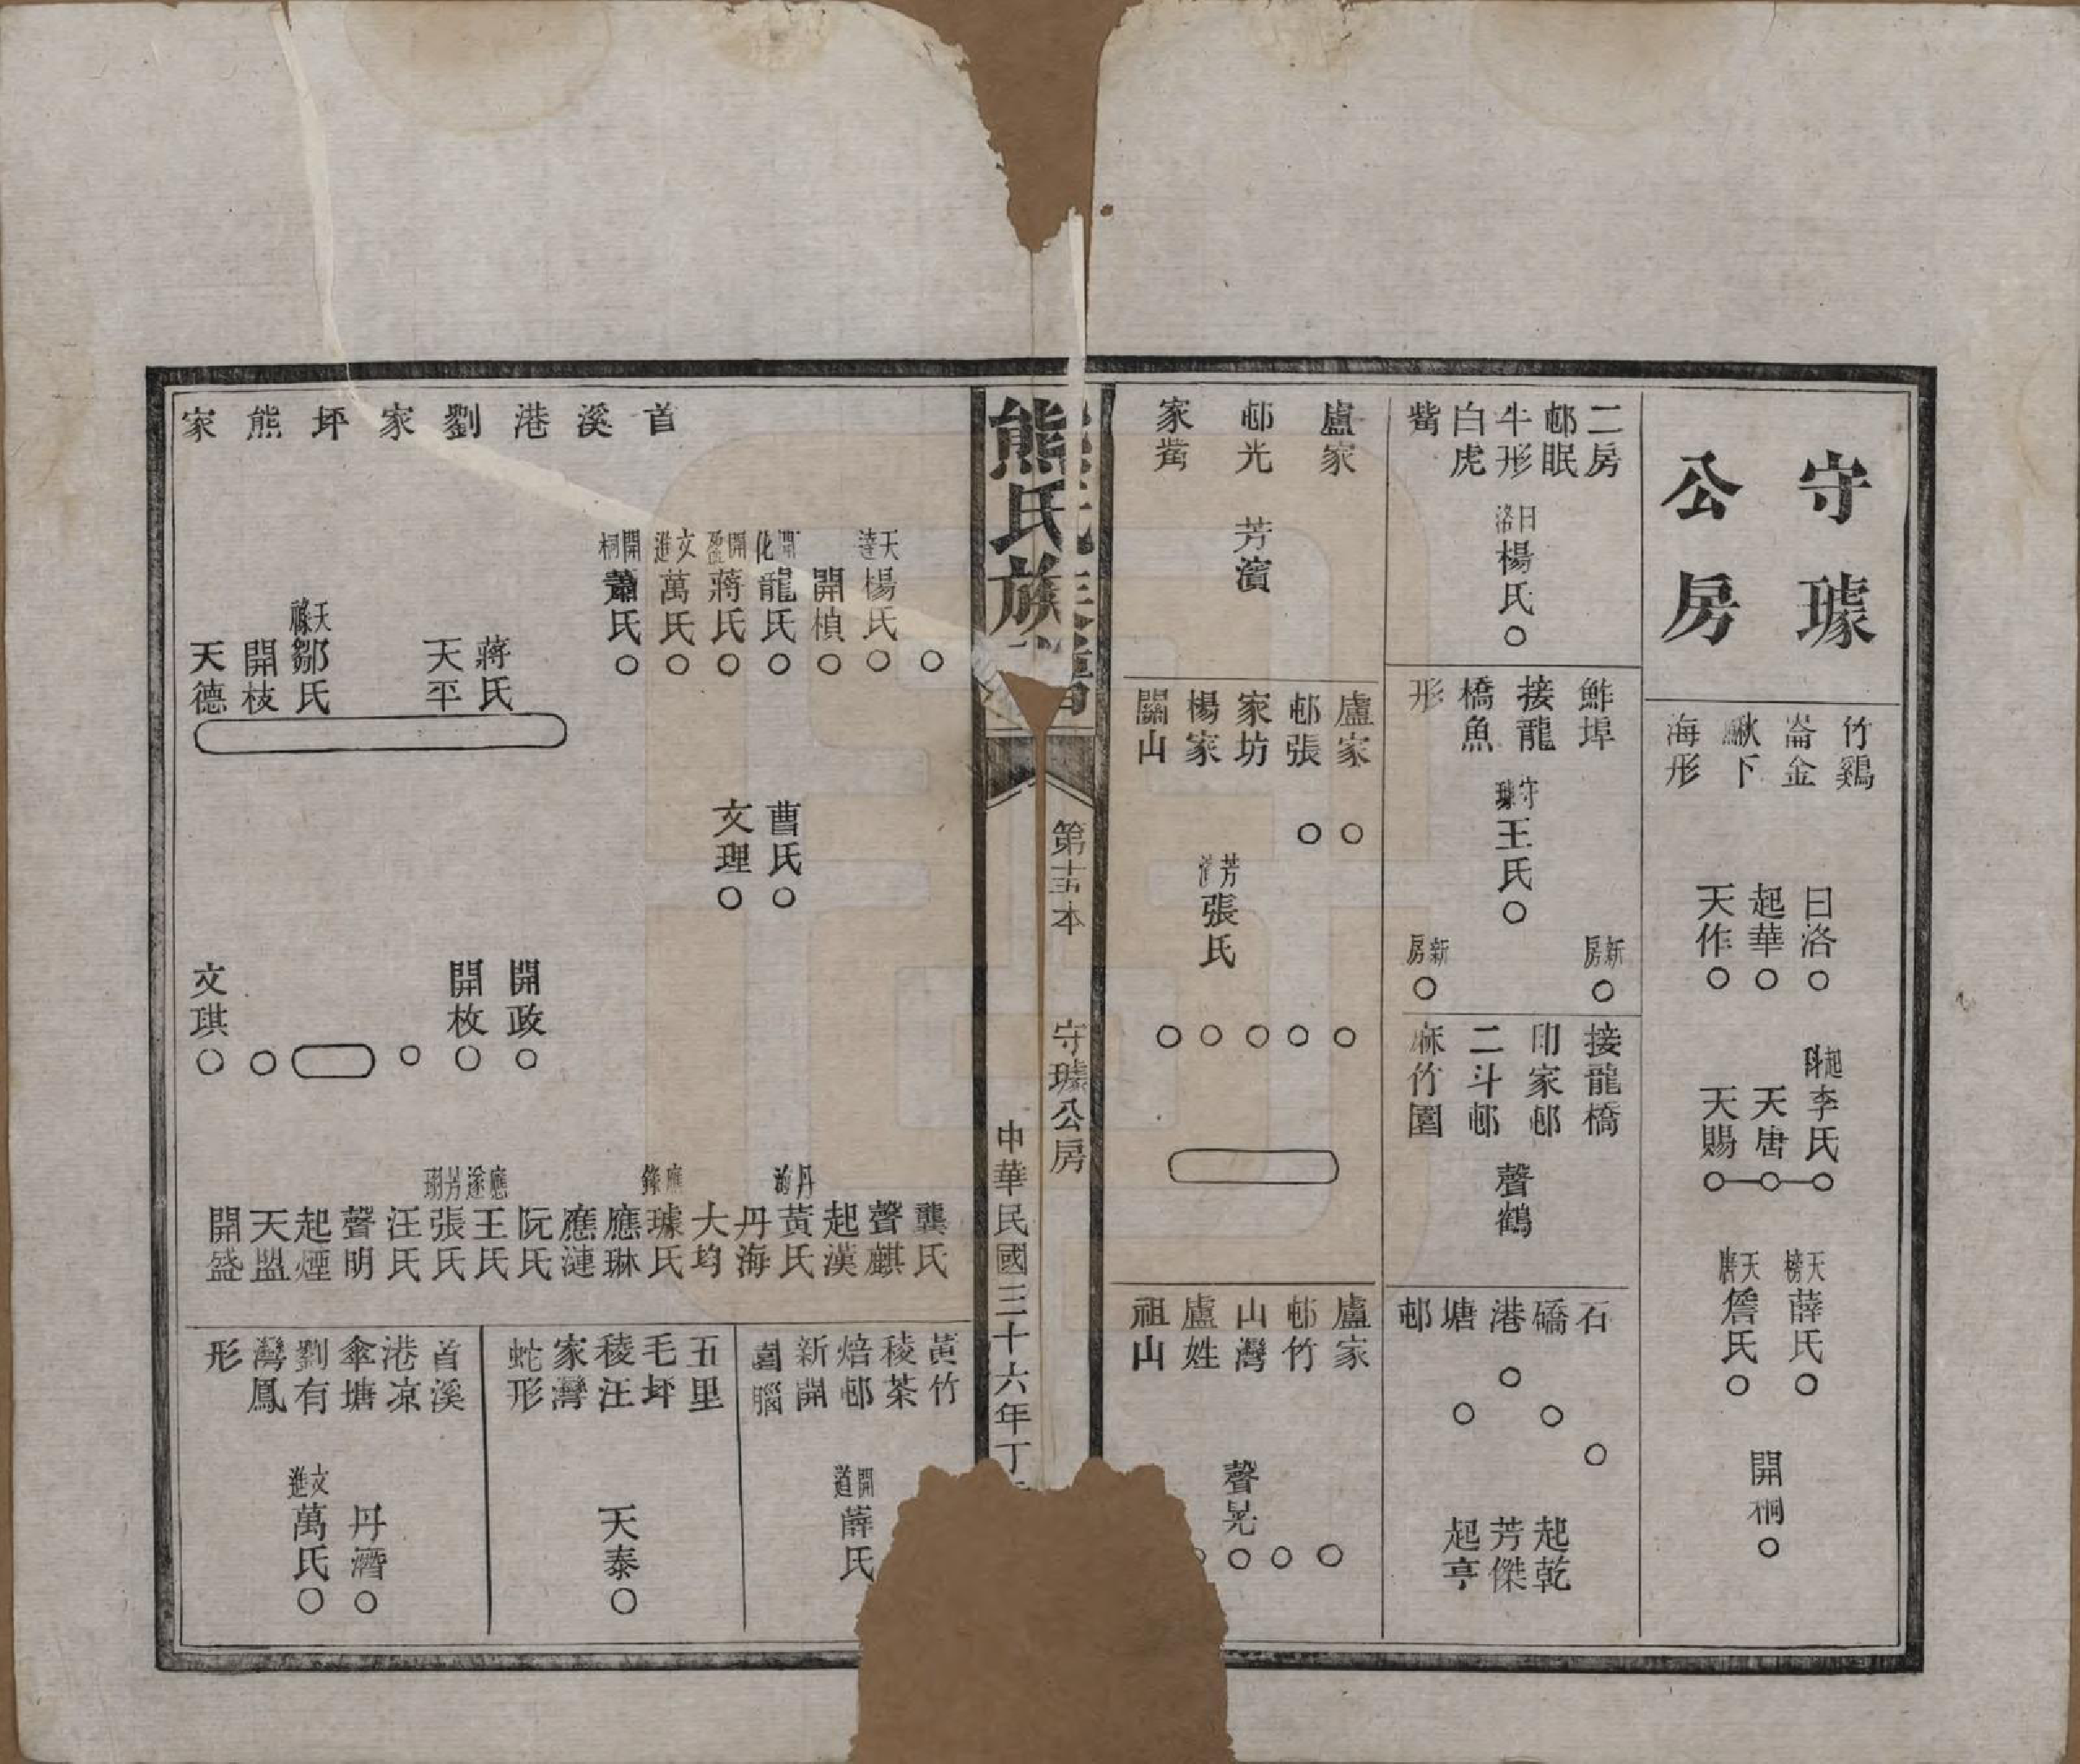 守璩
公房
竹鷄
崙金
鍬下
海形
日洛
起華
天作
起科李氏
天唐
天賜
天榜薛氏
天唐詹氏
開桐
二房
邨眠
牛形
白虎
觜
日洛楊氏
鮓埠
接龍
橋魚
形
守璩王氏
新房
新房
接龍橋
印家邨
二斗邨
麻竹園
聲鶴
石
礄
港
塘
邨
起乾
芳傑
起亨
盧家
邨光
家觜
芳濵
盧家
邨張
家坊
楊家
關山
張氏
盧家
邨竹
山灣
盧姓
祖山
聲晃
熊氏族譜
第十五本
守璩公房
中華民國三十六年丁
首溪港劉家坪熊家
天達楊氏
開楨
開化龍氏
開蔣氏
文進萬氏
開桐蕭氏
蔣氏
天平
天祿鄒氏
開枝
天德
曹氏
文理
開政
開枚
文琪
龔氏
聲麒
起漢
丹黃氏
丹海
大均
應錄璩氏
應琳
應漣
阮氏
應遂王氏
芳珝張氏
汪氏
聲明
起煙
天盟
開盛
黃竹
稜茶
焙邨
新開
園腦
開道薛氏
五里
毛坪
稜汪
家灣
蛇形
天泰
首溪
港凉
傘塘
劉有
灣鳳
形
丹濳
文進萬氏